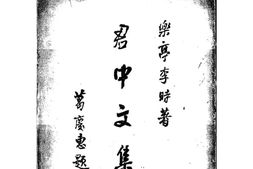 樂亭李時著
君中文集
葛慶惠題